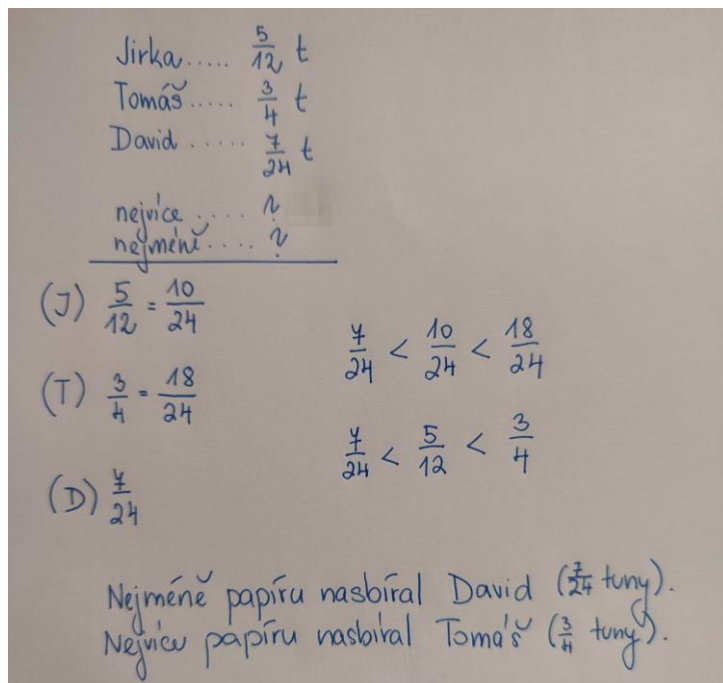 Jirka..... 5/12 t
Tomáš..... 3/4 t
David ..... 7/24 t
nejvíce .... ?
nejméně.... ?
(J) 5/12 = 10/24
(T) 3/4 = 18/24
(D) 7/24
7/24 < 10/24 < 18/24
7/24 < 5/12 < 3/4
Nejméně papíru nasbíral David (7/24 tuny).
Nejvíce papíru nasbíral Tomáš (3/4 tuny).